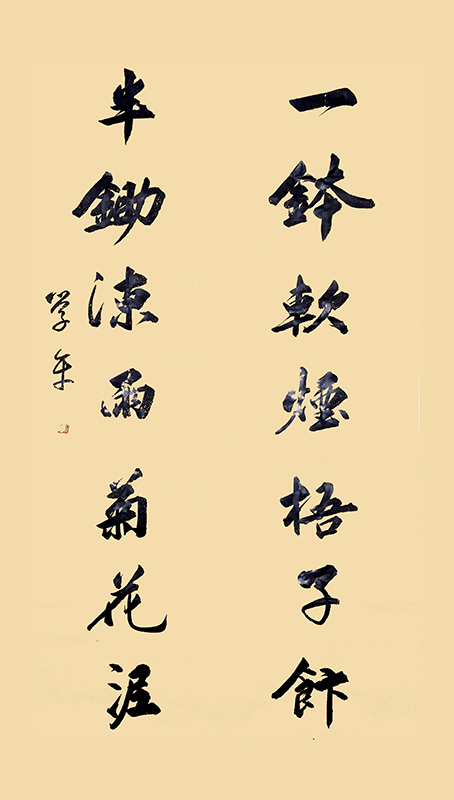 一鉢軟煙梧子飰
半鋤凍雨菊花泥
学年